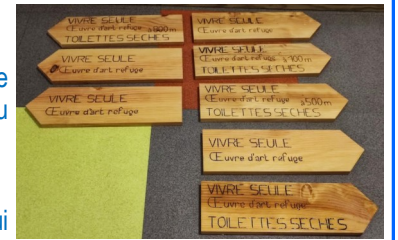 e
u
ui
VIVRE SEULE
Œuvre d'art refuge
TOILETTES SECHES
VIVRE SEULE
Œuvre d'art refuge
VIVRE SEULE
Œuvre d'art refuge
VIVRE SEULE
Œuvre d'art refuge
VIVRE SEULE
Œuvre d'art refuge à 100m
TOILETTES SECHES
VIVRE SEULE
Œuvre d'art refuge à 500m
TOILETTES SECHES
VIVRE SEULE
Œuvre d'art refuge
VIVRE SEULE
Œuvre d'art refuge
TOILETTES SECHES